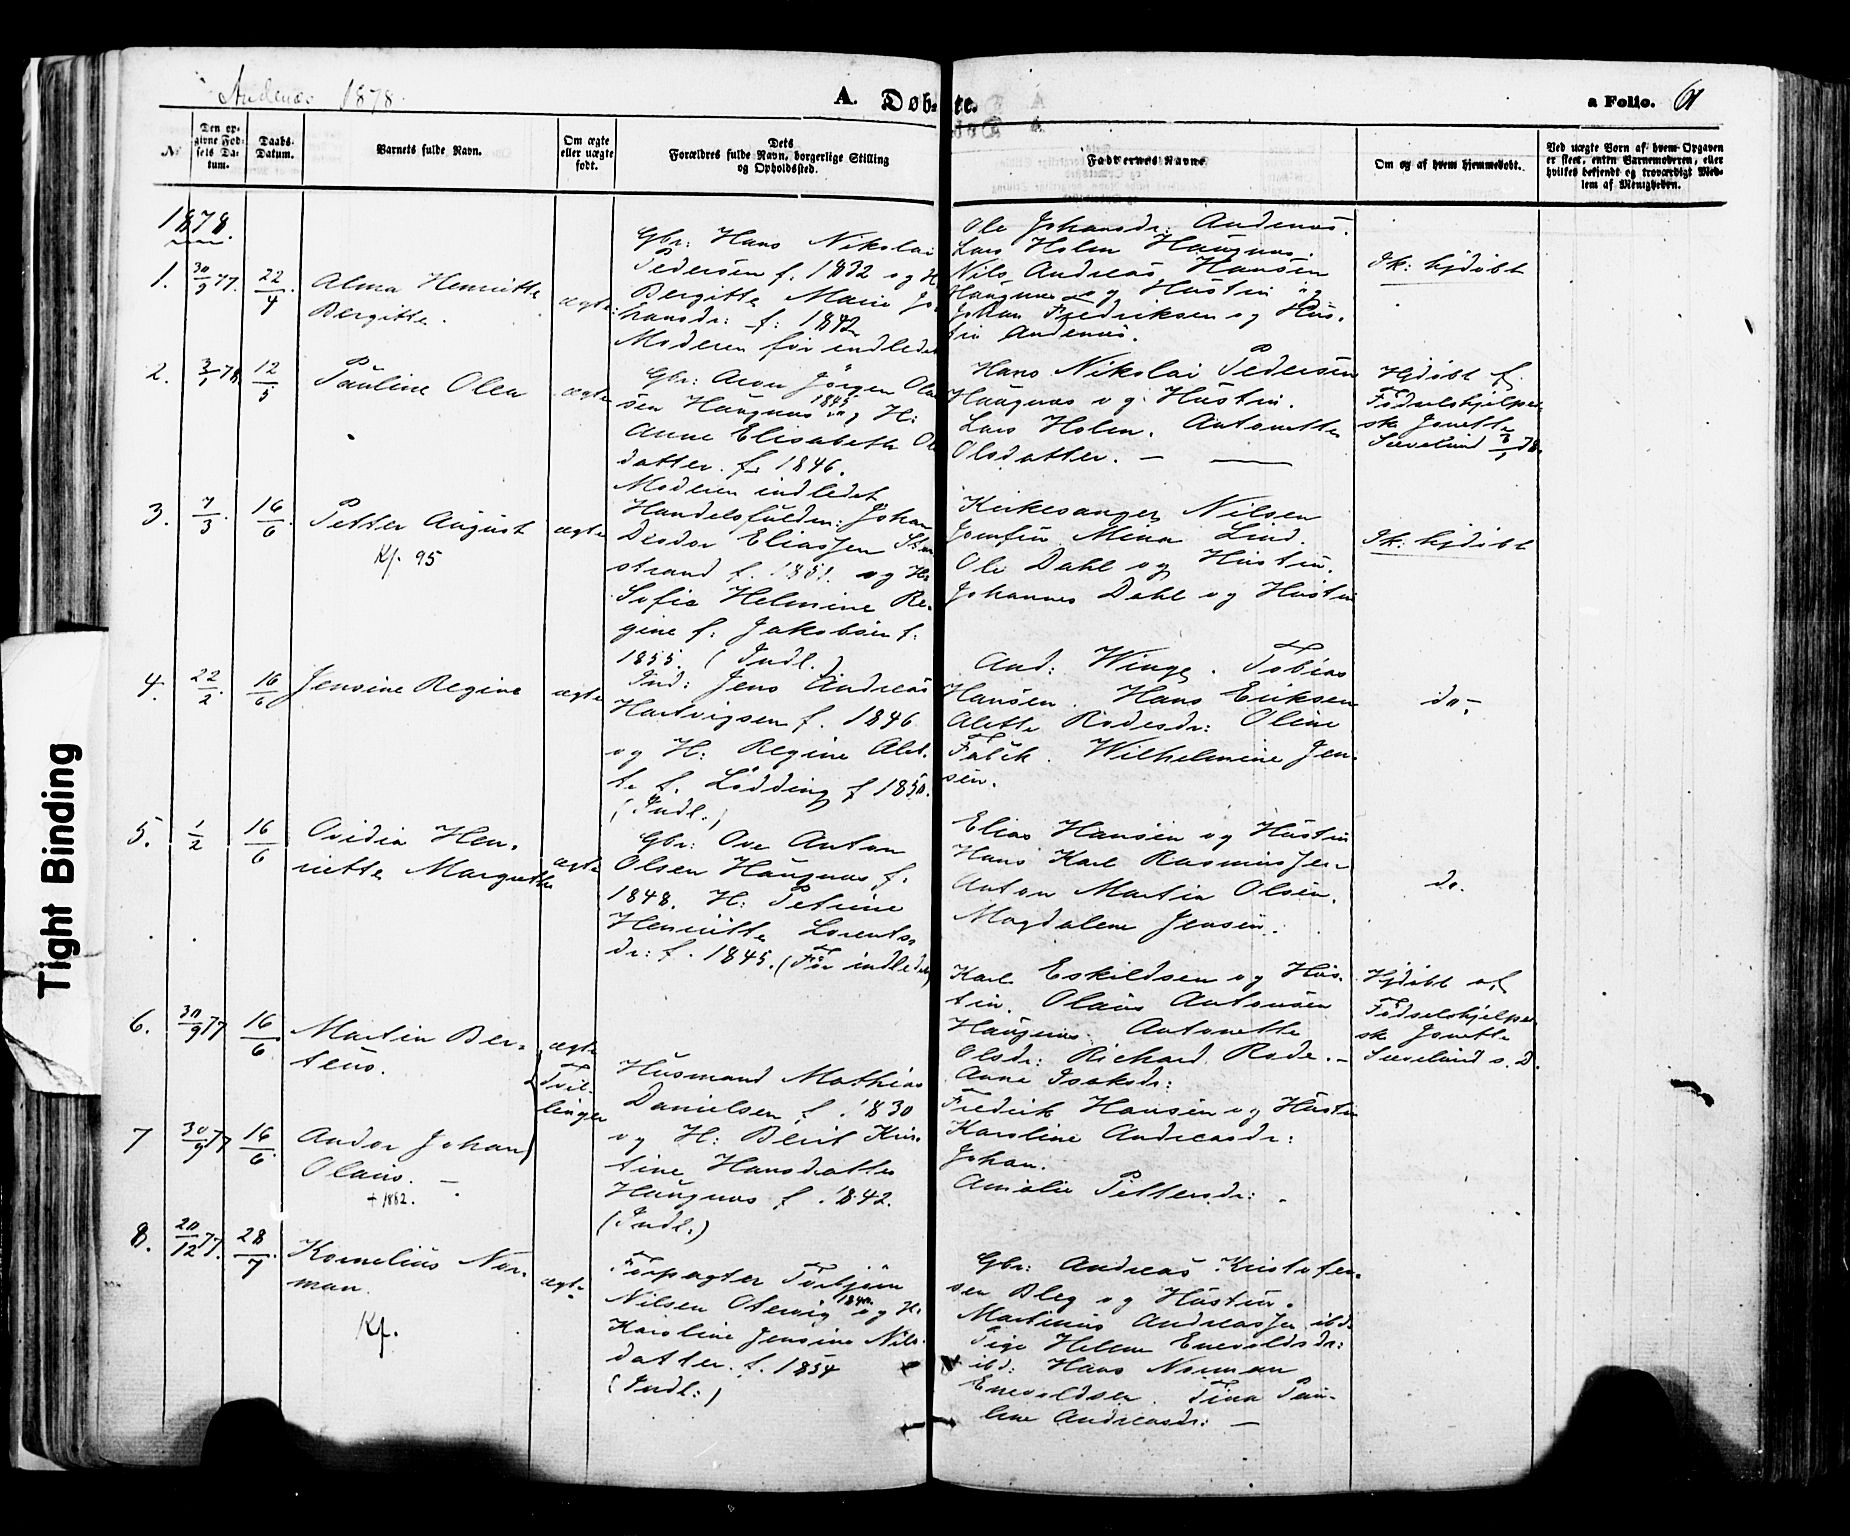 Andenæs 1878.
A. Døbte.
a Folio. 61
No
Den opgivne Fødsels Datum.
Daabs-Datum.
Barnets fulde Navn.
Om ægte eller uægte født.
Dets Forældres fulde Navn, borgerlige Stilling og Opholdssted.
Faddernes Navne.
Om og af hvem hjemmedøbt.
Ved uægte Børn af hvem Opgaven er skeet, enten Barnemoderen, eller hvilket bekjendt og troværdigt Medlem af Menigheden.
1878.
1.
30/9 77.
22/4
Alma Henriette
Bergitte.
ægte
Gbr: Hans Nikolai
Pedersen f. 1832 og H
Bergitte Marie Jo
hansdr: f: 1842
Moderen før indledet
Ole Johansdr: Andenæs.
Lars Holm Haugnæs.
Nils Andreas Hansen
Haugnæs og Hustru og
Johan Fredriksen og Hus-
tru Andenæs.
Ik: hjdøbt
2.
3/1 78.
12/5
Pauline Olea
ægte
Gbr: Aron Jørgen Ola
sen Haugnæs 1845 og H:
Anne Elisabeth Ol
datter. f. 1846.
Moderen indledet
Hans Nikolai Pedersen
Haugnæs og Hustru.
Lars Holm. Antonette
Olsdatter. — —
Hjdøbt af
Fødselshjelper-
ske Jonette
Sævelund 3/1 78.
3.
7/3.
16/6.
Petter August
Kf. 95
ægte
Handelsfuldm: Johan
Dedor Eliassen
strand f. 1851. og H:
Sofie Helmine Re-
gine f: Jakobsen f.
1855. (Indl.)
Kirkesanger Nilsen
Jomfru Mina Lind.
Ole Dahl og Hustru.
Johannes Dahl og Hustru
Ik: hjdøbt
4.
22/2.
16/6
Jensine Regine
ægte
Ind: Jens Andreas
Hartvigsen f. 1846
og H: Regine Alet-
te f. Lødding f 1850.
(Indl.)
And: Winge. Tobias
Hansen. Hans Eriksen
Alette Rodesdr: Oline
Falck. Wilhelmine Jen-
sen.
do.
5.
1/2
16/6
Ovidia Hen-
riette Margrethe
ægte
Gbr: Ove Anton
Olsen Haugnæs f.
1848. H: Petrine
Henriette Lorents-
dr: f. 1845. (Før indledet)
Elias Hansen og Hustru
Hans Karl Rasmussen
Anton Martin Olsen.
Magdalene Jensen.
do.
6.
30/9 77
16/6
Martin Ber-
teus.
ægte
Tvil-
linger
Husmand Mathias
Danielsen f. 1830
og H: Berit Kris-
tine Hansdatter
Haugnæs f. 1842.
(Indl.)
Karl Eskildsen og Hus-
tru. Olaus Antonsen
Haugnæs. Antonette
Olsdr: Richard Rode. —
Anne Isaksdr:
Hjdøbt af
Fødselshjelper-
ske Jonette
Sævelund s. D.
7
30/9 77
16/6.
Andor Johan
Olaus. —
+ 1882.
Fredrik Hansen og Hustru
Karoline Andreasdr:
Johan.
Amalie Pettersdr:
8.
20/12 77.
28/7
Kornelius Nor-
man.
Kf.
ægte
Forpagter Torbjørn
Nilsen Otervig 1840 og H.
Karoline Jensine Nils-
datter. f. 1854
(Indl:)
Gbr: Andreas Kristofer-
sen Bleg og Hustru.
Martinus Andreassen ibd:
Pige Helene Enevoldsdr:
ibd: Hans Norman
Enevoldsen. Tina Pau-
line Andreasdr: —
Tight Binding